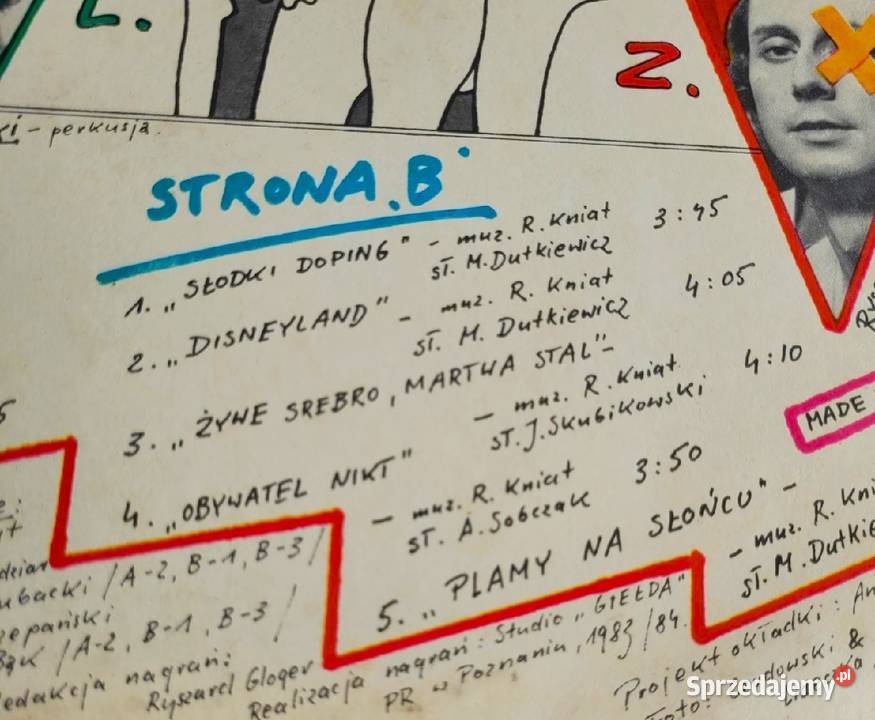 2.
ki - perkusja.
STRONA B
1. „SŁODKI DOPING" - muz. R. Kniat 3:45
sł. M. Dutkiewicz
2. „DISNEYLAND" - muz. R. Kniat 4:05
sł. M. Dutkiewicz
3. „ŻYWE SREBRO, MARTWA STAL" -
- muz. R. Kniat 4:10
sł. J. Skubikowski
4. „OBYWATEL NIKT"
- muz. R. Kniat 3:50
sł. A. Sobczak
5. „PLAMY NA SŁOŃCU" -
- muz. R. Kni
sł. M. Dutkie
MADE
ubacki / A-2, B-1, B-3 /
zepański
Bąk / A-2, B-1, B-3 /
edakcja nagrań:
Ryszard Gloger
Realizacja nagrań: Studio „GIEŁDA"
PR w Poznaniu, 1983/84.
Projekt okładki: An
Sprzedajemy.pl